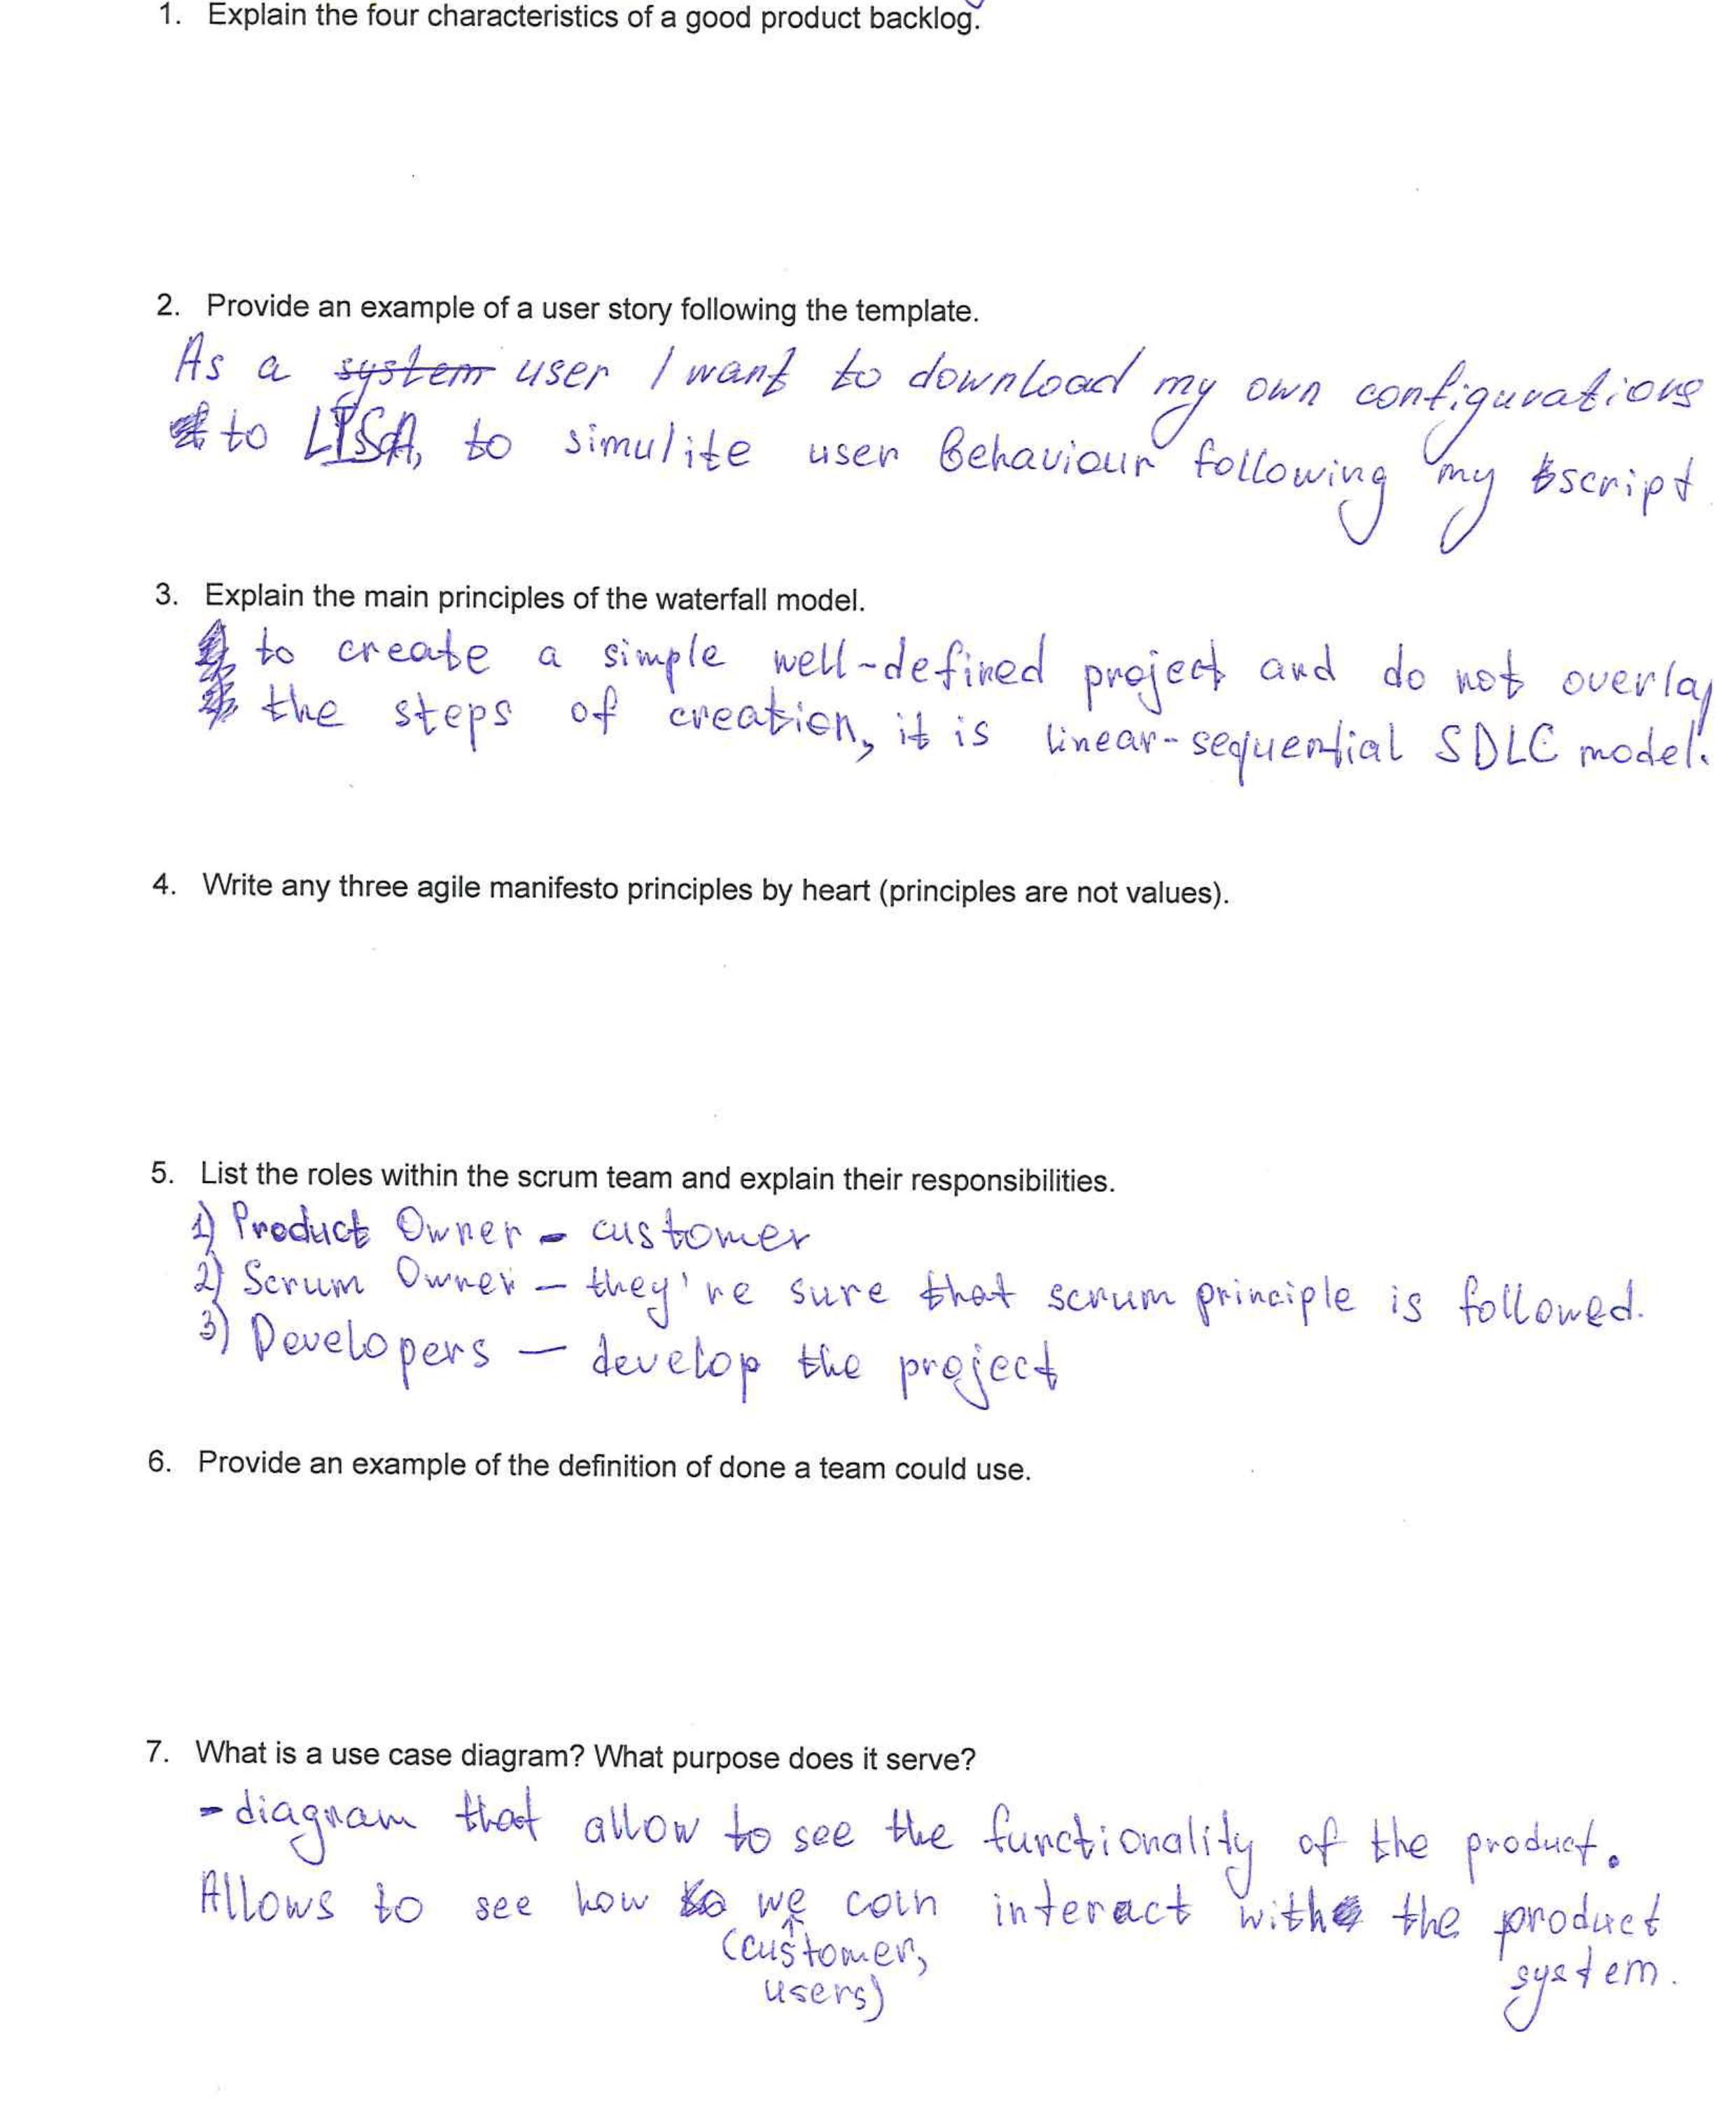 1. Explain the four characteristics of a good product backlog.
2. Provide an example of a user story following the template.
As a system user I want to download my own configurations
to LISA, to simulite user Behaviour following my script
3. Explain the main principles of the waterfall model.
to create a simple well-defined project and do not overlap
the steps of creation, it is linear-sequential SDLC model.
4. Write any three agile manifesto principles by heart (principles are not values).
5. List the roles within the scrum team and explain their responsibilities.
1) Product Owner - customer
2) Scrum Owner - they're sure that scrum principle is followed.
3) Developers - develop the project
6. Provide an example of the definition of done a team could use.
7. What is a use case diagram? What purpose does it serve?
- diagram that allow to see the functionality of the product.
Allows to see how we can interact with the product
(customer,
users)
system.